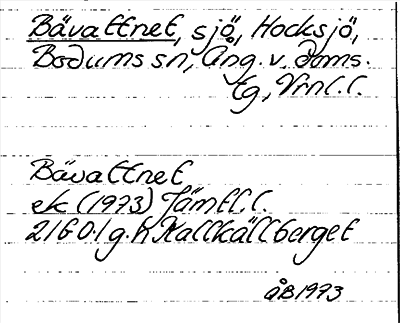 Bävattnet, sjö, Hocksjö,
Bodums sn, Ång. v. doms.
tg, Vrnl. l.
Bävattnet
ek (1973) Jämtl. l.
21601 g. h Kallkällberget
ÅB 1973